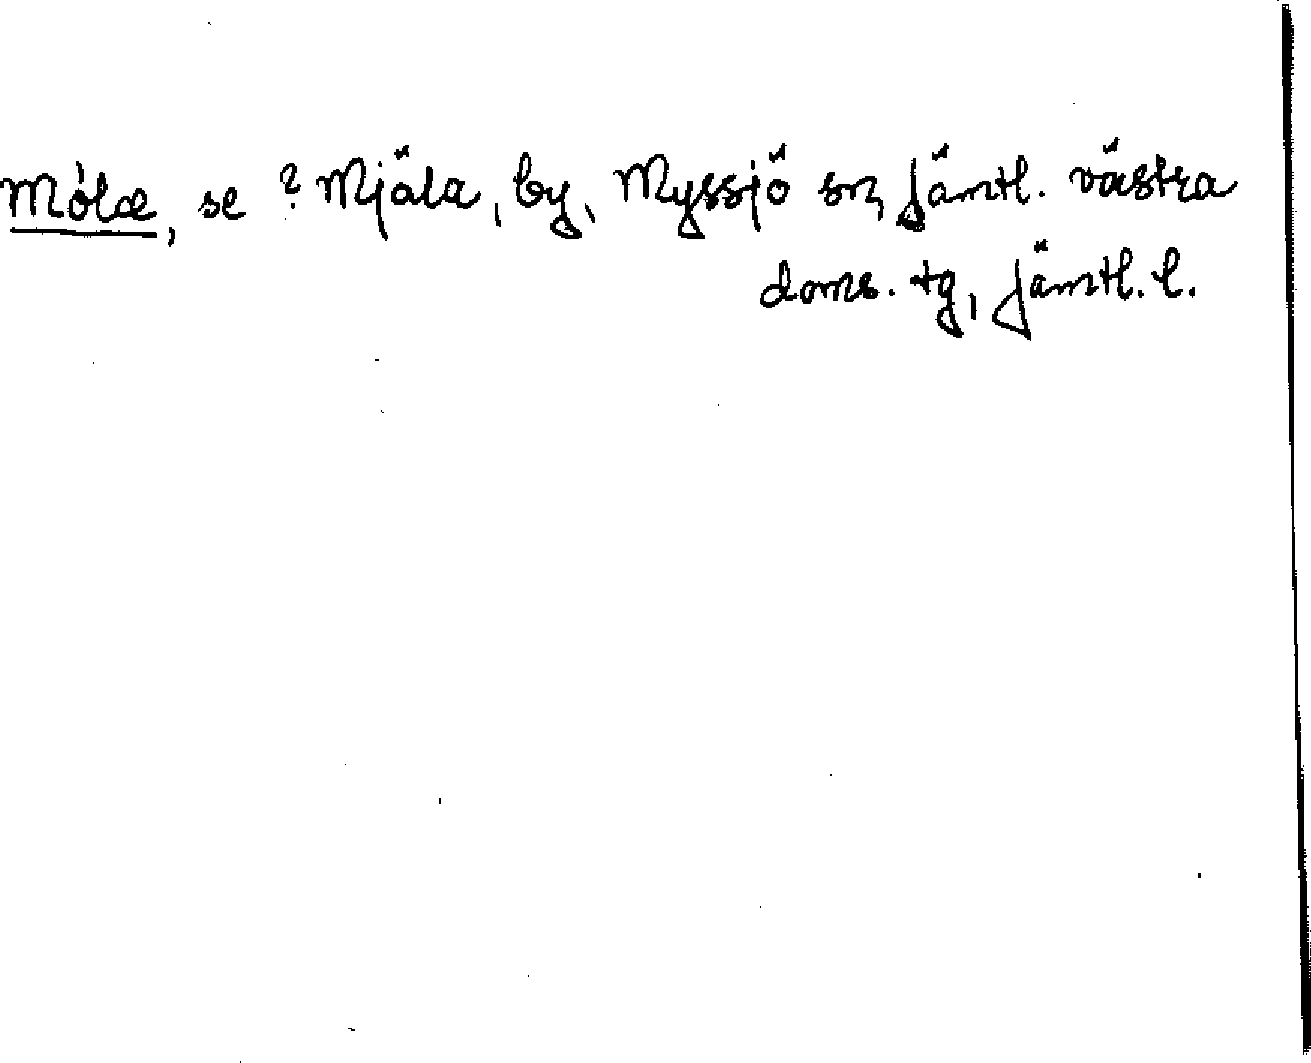 Mólæ, se ? Mjäla, by, Myssjö sn, Jämtl. västra
doms. tg, Jämtl. l.